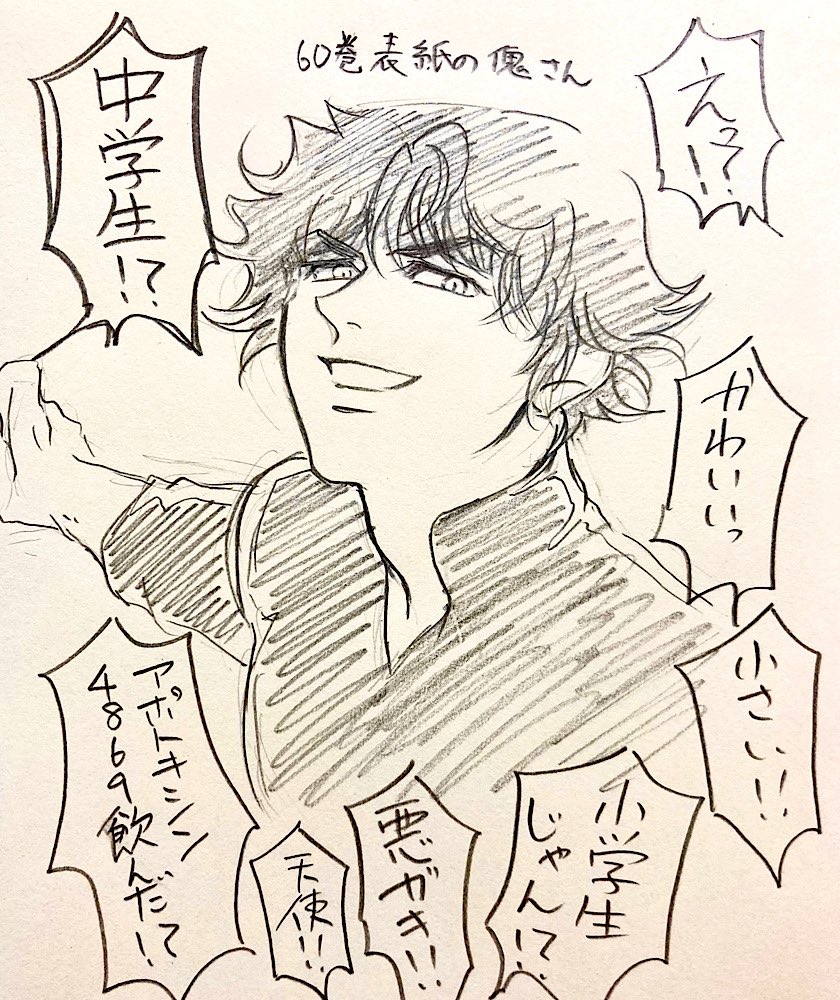 60巻表紙の傀さん
えっ!?
中学生!?
かわいいっ
小さい!!
小学生
じゃん!?
悪ガキ!!
天使!!
アポトキシン
4869飲んだ!?